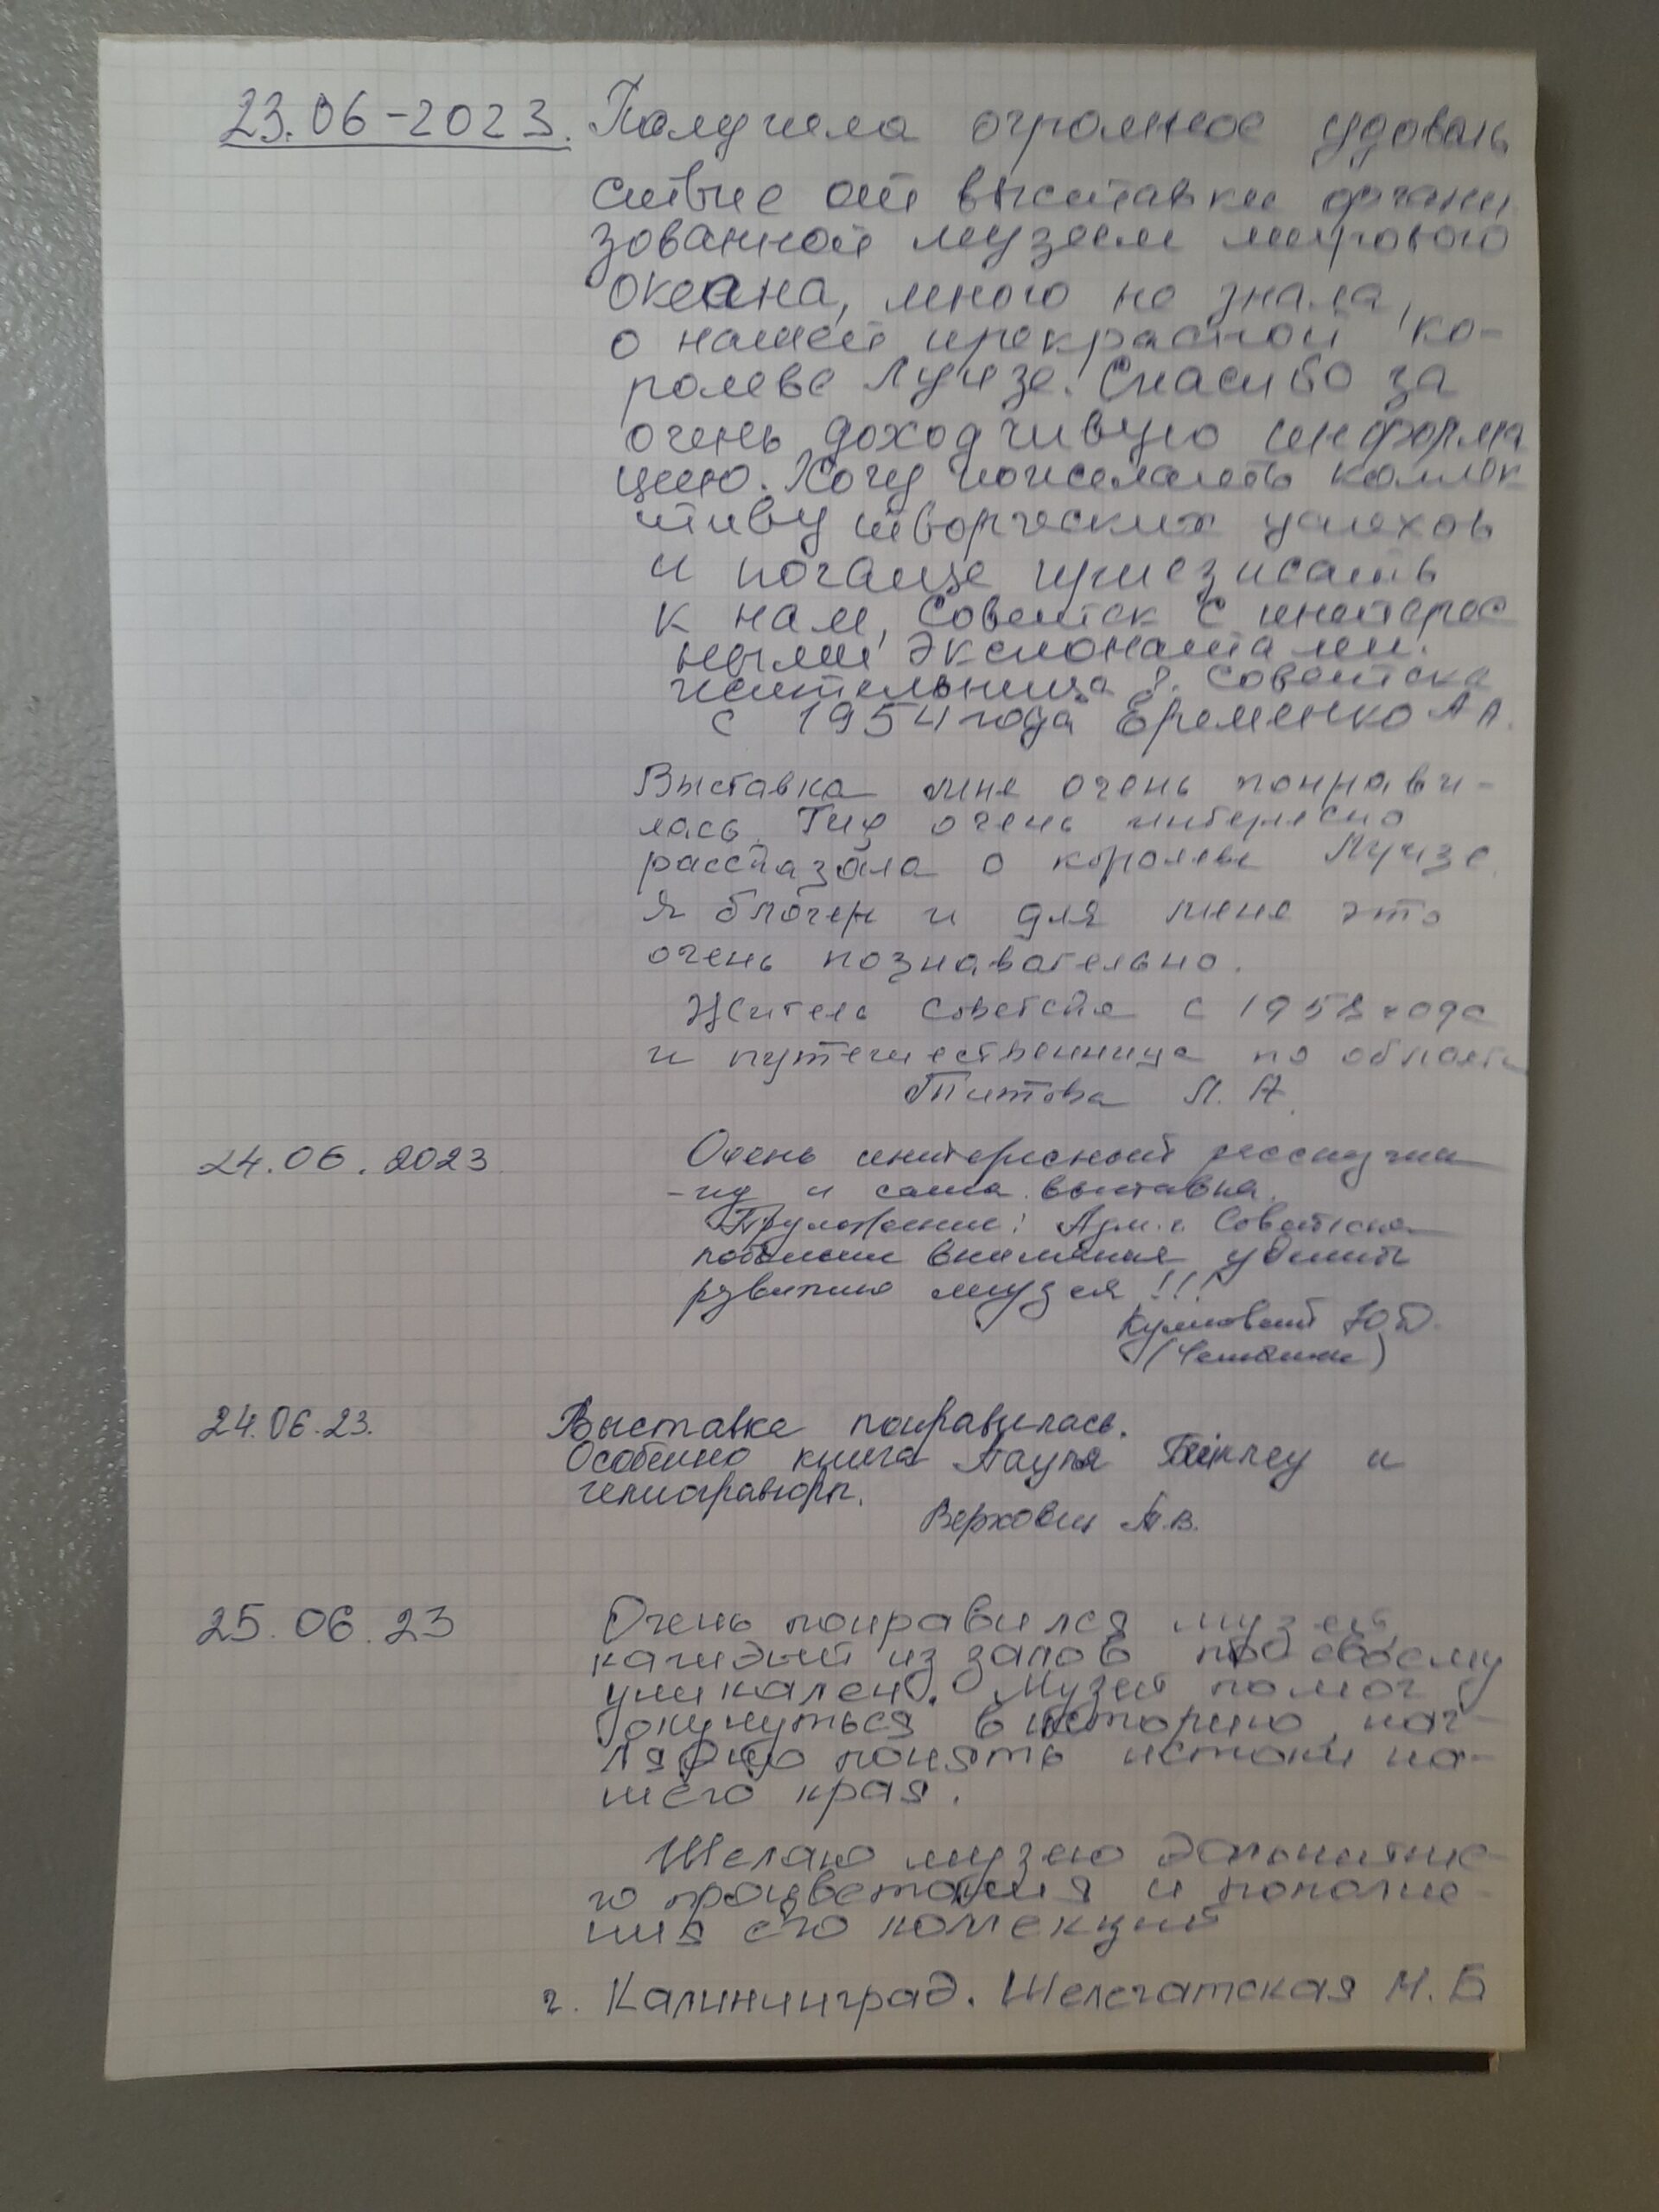 23.06-2023. Получила огромное удоволь
ствие от выставки органи
зованной музеем мирового
океана, много не знала,
о нашей прекрасной ко-
ролеве Луизе. Спасибо за
очень доходчивую информа
цию. Хочу пожелать коллек
тиву творческих успехов
и почаще приезжать
к нам, Советск с интерес
ными экспонатами.
жительница г. Советска
с 1954 года Еременко А А.
Выставка мне очень понрави-
лась. Гид очень интересно
рассказала о королеве Луизе.
Я блогер и для меня это
очень познавательно.
Житель Советска с 1958 года
и путешественница по области
Титова Л. А.
24.06.2023 Очень интересный
-ид и сама выставка.
Адм. г. Советска
побольше внимания уделить
развитию музея!!!
Ю.
24.06.23. Выставка понравилась.
Особенно книга Пауля и
гелиогравюры.
Верховин А.В.
25.06.23 Очень понравился музей,
каждый из залов по своему
уникален. Музей помог
окунуться в историю, наг-
лядно понять истоки на-
шего края.
Желаю музею дальнейше-
го процветания и пополне-
ния его коллекций
г. Калининград. М. Б